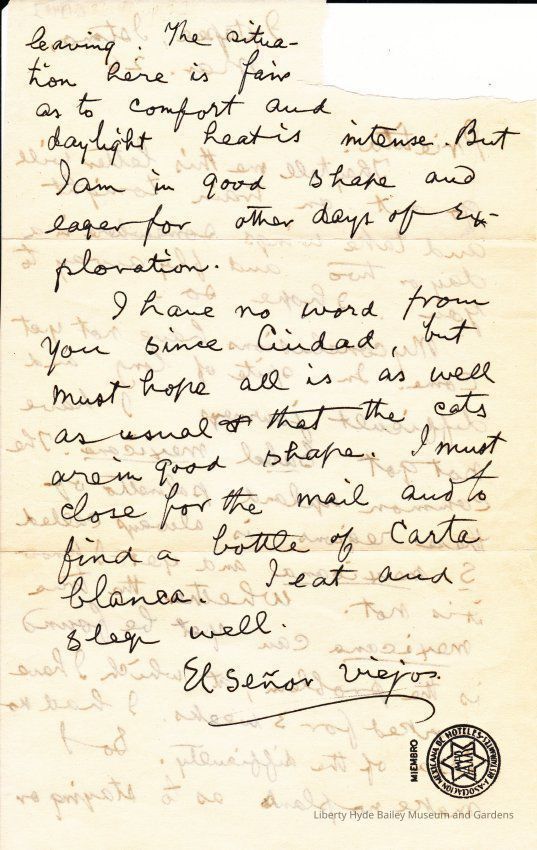 leaving. The situa-
tion here is fair
as to comfort and
daylight heat is intense. But
I am in good shape and
eager for other days of ex-
ploration.
I have no word from
you since Ciudad, but
must hope all is as well
as usual & that the cats
are in good shape. I must
close for the mail and to
find a bottle of Carta
blanca. I eat and
sleep well.
El Señor Viejos.
MIEMBRO
ASOCIACION MEXICANA DE HOTELES
Liberty Hyde Bailey Museum and Gardens